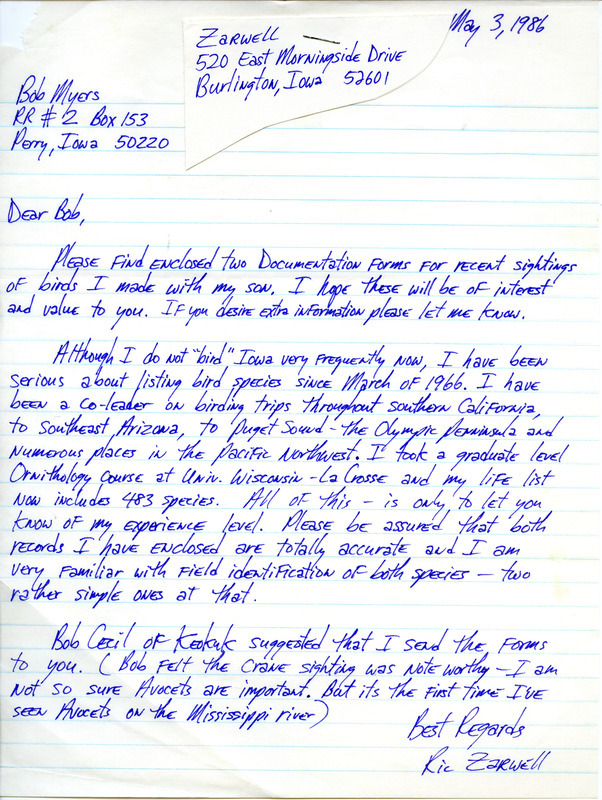 May 3, 1986
Zarwell
520 East Morningside Drive
Burlington, Iowa 52601
Bob Myers
RR # 2 Box 153
Perry, Iowa 50220
Dear Bob,
Please find enclosed two Documentation Forms for recent sightings
of birds I made with my son. I hope these will be of interest
and value to you. If you desire extra information please let me know.
Although I do not "bird" Iowa very frequently now, I have been
serious about listing bird species since March of 1966. I have
been a co-leader on birding trips throughout Southern California,
to Southeast Arizona, to Puget Sound - the Olympic Penninsula and
numerous places in the Pacific Northwest. I took a graduate level
Ornithology Course at Univ. Wisconsin - La Crosse and my life list
now includes 483 species. All of this - is only to let you
know of my experience level. Please be assured that both
records I have enclosed are totally accurate and I am
very familiar with field identification of both species - two
rather simple ones at that.
Bob Cecil of Keokuk suggested that I send the forms
to you. (Bob felt the Crane sighting was noteworthy - I am
not so sure Avocets are important. But its the first time I've
seen Avocets on the Mississippi river)
Best Regards
Ric Zarwell